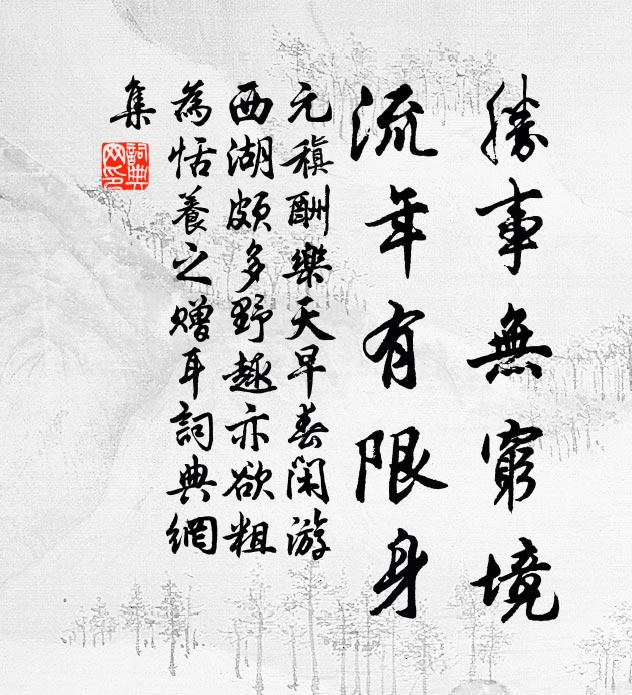 勝事無窮境
流年有限身
元稹酬樂天早春閑游
西湖頗多野趣亦欲粗
為恬養之贈耳詞典網
集
詞典
网印